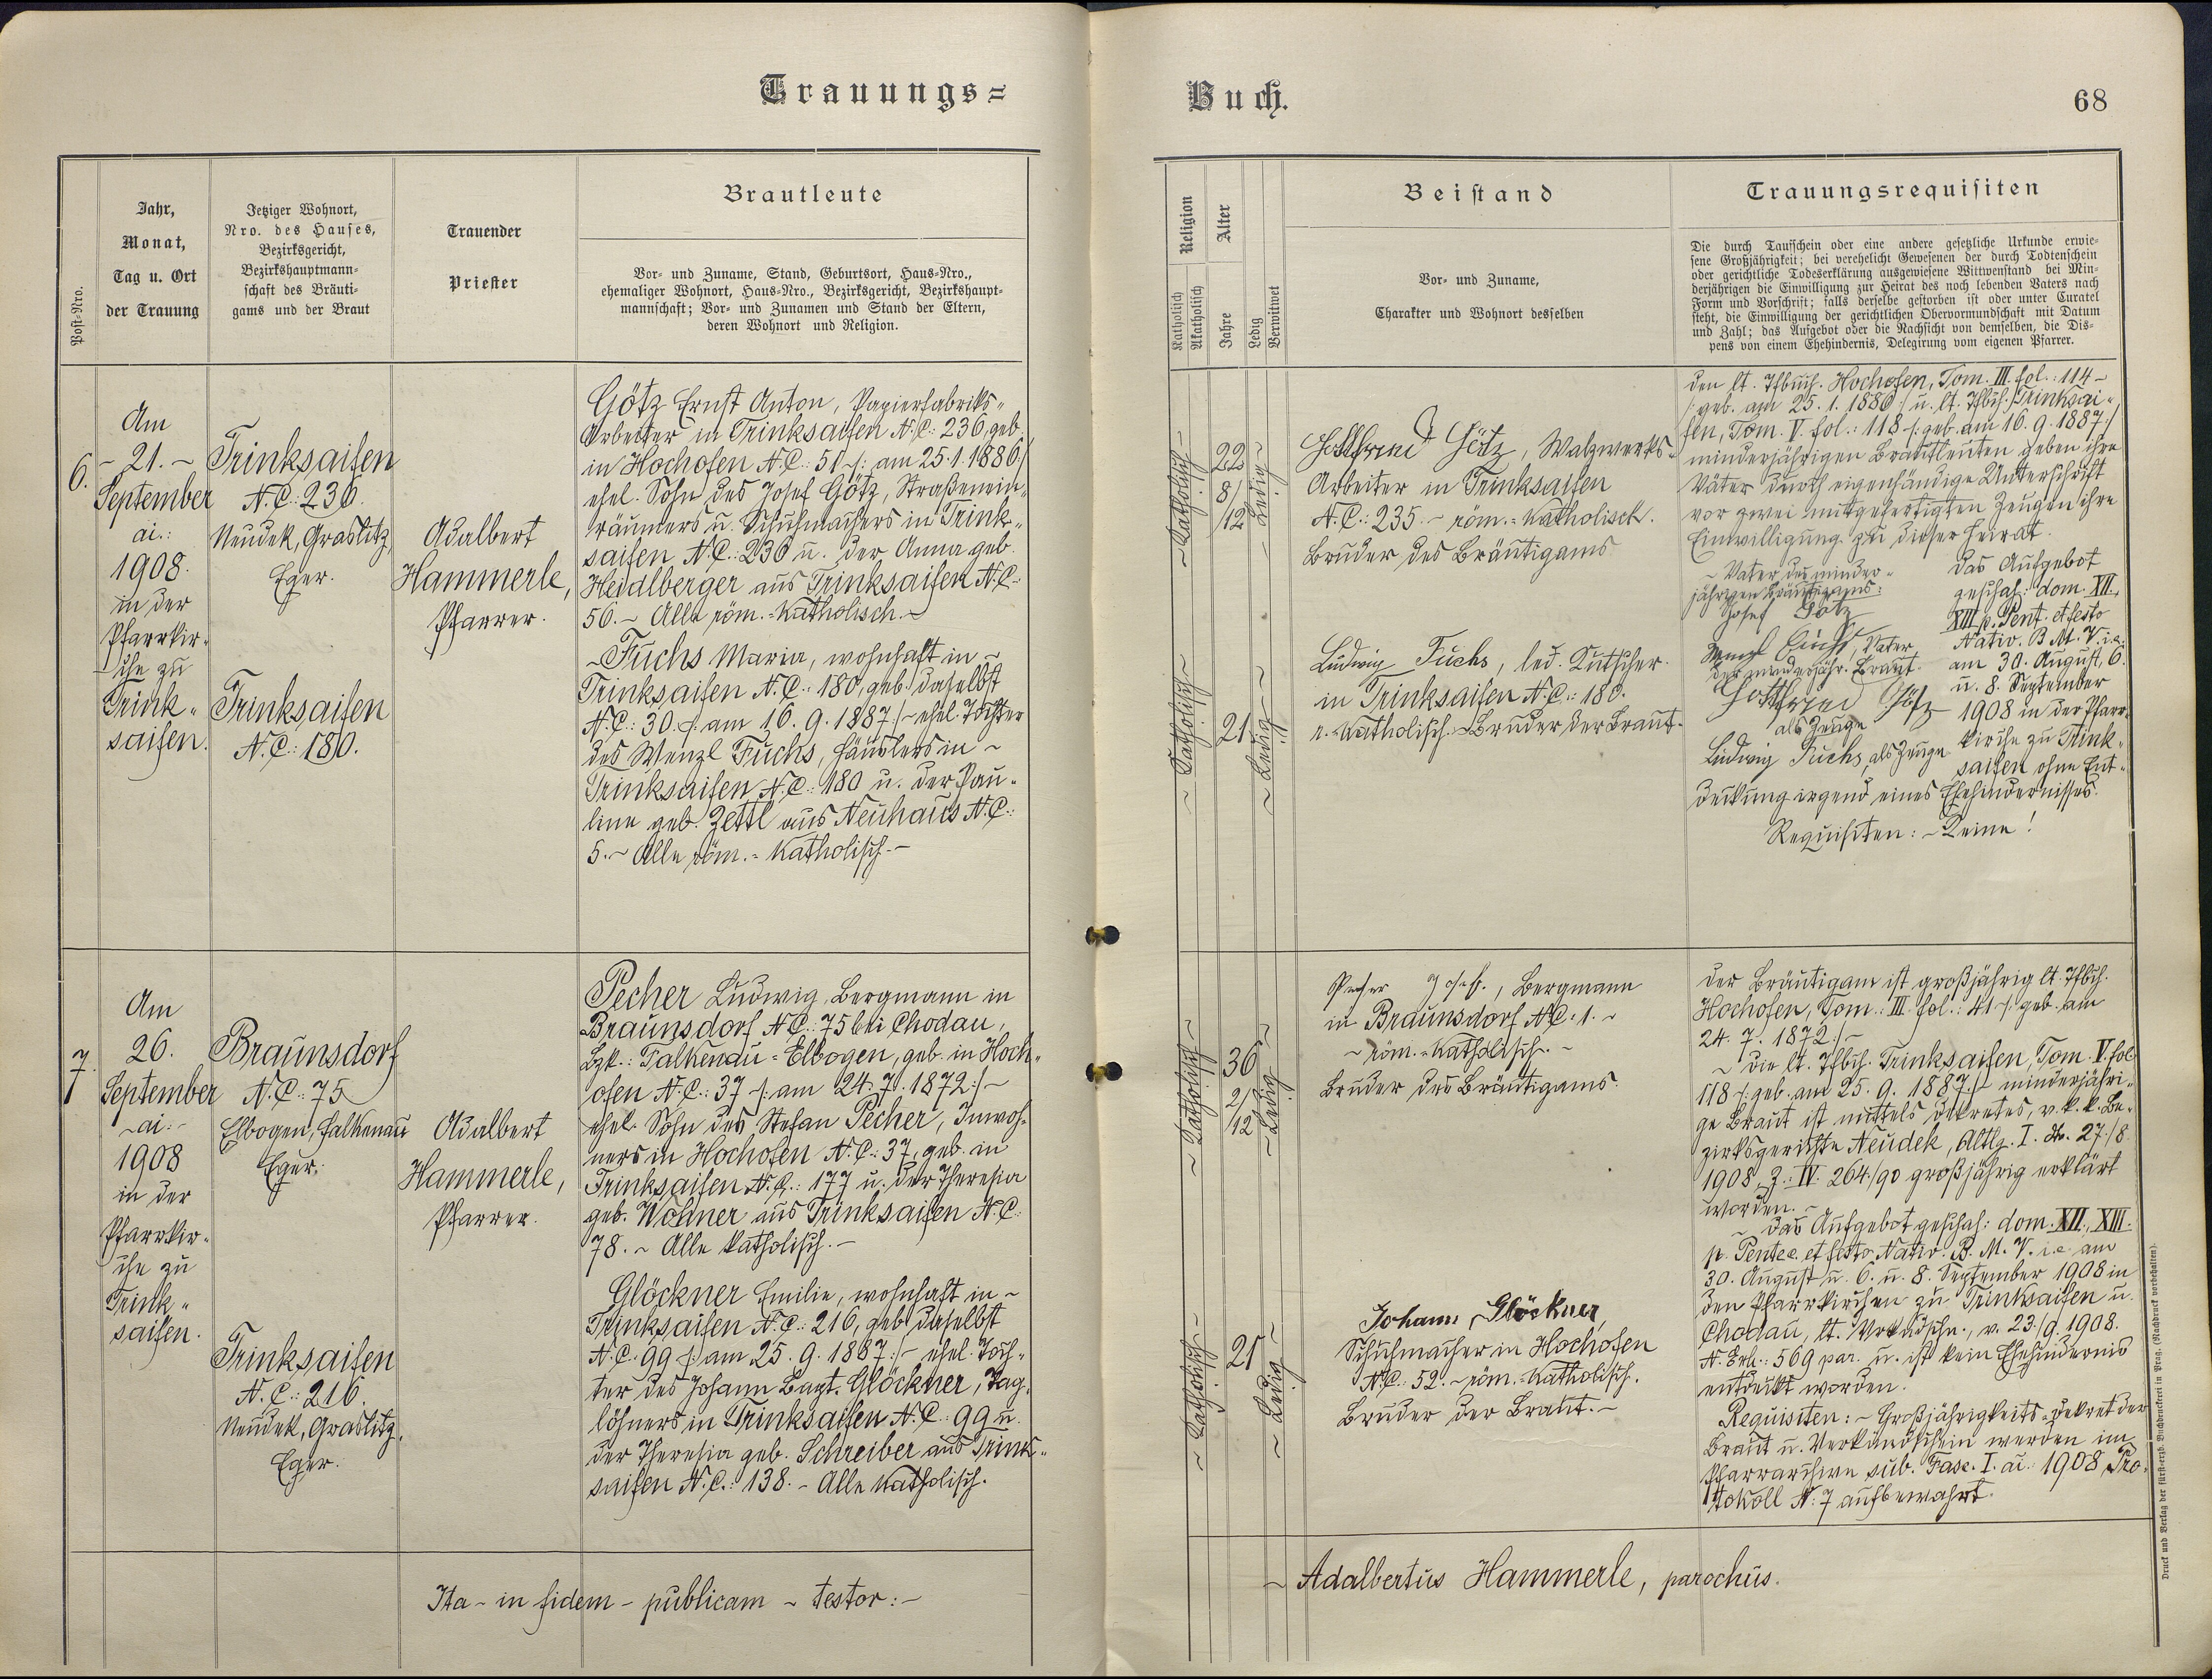 Trauungs=
Buch.
68
Post=Nro.
Jahr,
Monat,
Tag u. Ort
der Trauung
Jetziger Wohnort,
Nro. des Hauses,
Bezirksgericht,
Bezirkshauptmann=
schaft des Bräuti=
gams und der Braut
Trauender
Priester
Brautleute
Vor= und Zuname, Stand, Geburtsort, Haus=Nro.,
ehemaliger Wohnort, Haus=Nro., Bezirksgericht, Bezirkshaupt=
mannschaft; Vor= und Zunamen und Stand der Eltern,
deren Wohnort und Religion.
Religion
Katholisch
Akatholisch
Alter
Jahre
Ledig
Verwitwet
Beistand
Vor= und Zuname,
Charakter und Wohnort desselben
Trauungsrequisiten
Die durch Taufschein oder eine andere gesetzliche Urkunde erwie=
sene Großjährigkeit; bei verehelicht Gewesenen der durch Todtenschein
oder gerichtliche Todeserklärung ausgewiesene Wittwenstand bei Min=
derjährigen die Einwilligung zur Heirat des noch lebenden Vaters nach
Form und Vorschrift; falls derselbe gestorben ist oder unter Curatel
steht, die Einwilligung der gerichtlichen Obervormundschaft mit Datum
und Zahl; das Aufgebot oder die Nachsicht von demselben, die Dis=
pens von einem Ehehindernis, Delegirung vom eigenen Pfarrer.
6.
Am
- 21. -
September
ai.:
1908.
in der
Pfarrkir-
che zu
Trink-
saifen.
Trinksaifen
N.C.: 236.
Neudek, Graslitz,
Eger.
Trinksaifen
N.C.: 180.
Adalbert
Hammerle,
Pfarrer.
Götz Ernst Anton, Papierfabriks-
Arbeiter in Trinksaifen N.C.: 236, geb.
in Hochofen N.C.: 51 /: am 25.1.1886:/
ehel. Sohn des Josef Götz, Straßenein-
räumers u. Schuhmachers in Trink-
saifen N.C.: 236 u. der Anna geb.
Heidlberger aus Trinksaifen N.C.:
56. - Alle röm.=katholisch. -
- Fuchs Maria, wohnhaft in -
Trinksaifen N.C.: 180, geb. daselbst
N.C.: 30. /: am 16. 9. 1887:/ - ehel. Tochter
des Wenzl Fuchs, Häuslers in -
Trinksaifen N.C.: 180 u. der Pau-
line geb. Zettl aus Neuhaus N.C.:
5. - Alle röm.=katholisch. -
- Katholisch -
22
8/
12
- Ledig -
- Katholisch -
21
- Ledig -
Gottfried Götz, Walzwerks-
Arbeiter in Trinksaifen
N.C.: 235. - röm.=katholisch.
Bruder des Bräutigams
Ludwig Fuchs, led. Kutscher
in Trinksaifen N.C.: 180.
r.=katholisch - Bruder der Braut.
Den lt. Tfbuch. Hochofen, Tom. III. fol.: 114 -
/: geb. am 25. 1. 1886:/ u. lt. Tfbch. Trinksai-
fen, Tom. V. fol.: 118 /: geb. am 16. 9. 1887:/
minderjährigen Brautleuten geben ihre
Väter durch eigenhändige Unterschrift
vor zwei mitgefertigten Zeugen ihre
Einwilligung zu dieser Heirat.
- Vater des minder-
jährigen Bräutigams:
Josef Götz
Wenzl Fuchs, Vater
der minderjähr. Braut.
Gottfried Götz
als Zeuge
Ludwig Fuchs, als Zeuge
Das Aufgebot
geschah: dom. XII.,
XIII p. Pent. et festo
Nativ. B. M. V. i.e.
am 30. August, 6.
u. 8. September
1908 in der Pfarr-
kirche zu Trink-
saifen ohne Ent-
deckung irgend eines Ehehindernisses.
Requisiten: - Keine!
7.
Am
26.
September
- ai: -
1908
in der
Pfarrkir-
che zu
Trink-
saifen.
Braunsdorf
N.C.: 75
Elbogen, Falkenau
Eger.
Trinksaifen
N.C.: 216.
Neudek, Graslitz,
Eger.
Adalbert
Hammerle,
Pfarrer.
Pecher Ludwig, Bergmann in
Braunsdorf N.C.: 75 bei Chodau,
Bzk.: Falkenau=Elbogen, geb. in Hoch-
ofen N.C.: 37 /: am 24. 7. 1872:/ -
ehel. Sohn des Stefan Pecher, Inwoh-
ners in Hochofen N.C.: 37, geb. in
Trinksaifen N.C.: 177 u. der Theresia
geb. Wohner aus Trinksaifen N.C.
78. - Alle katholisch. -
Glöckner Emilie, wohnhaft in -
Trinksaifen N.C.: 216, geb. daselbst
N.C. 99 /: am 25. 9. 1887:/ - ehel. Toch-
ter des Johann Bapt. Glöckner, Tag-
löhners in Trinksaifen N.C.: 99 u.
der Theresia geb. Schreiber aus Trink-
saifen N.C.: 138. - Alle katholisch.
- Katholisch -
36
2/
12
- Ledig -
- Katholisch -
21
- Ledig -
Pecher Josef, Bergmann
in Braunsdorf N.C.: 1. -
- röm.=katholisch. -
Bruder des Bräutigams.
Johann Glöckner,
Schuhmacher in Hochofen
N.C.: 52. - röm.=katholisch.
Bruder der Braut. -
Der Bräutigam ist großjährig lt. Tfbch.
Hochofen, Tom.: III. fol.: 41 /: geb. am
24. 7. 1872:/ -
- Die lt. Tfbch. Trinksaifen, Tom. V. fol
118 /: geb. am 25. 9. 1887:/ - minderjähri-
ge Braut ist mittels Dekretes, v. k. k. Be-
zirksgerichte Neudek, Abtlg. I. dto. 27/8
1908, Z.: IV. 264/90 großjährig erklärt
worden. -
- Das Aufgebot geschah: dom. XII., XIII.
p. Pentec. et festo Nativ. B. M. V. i.e. am
30. August u. 6. u. 8. September 1908 in
den Pfarrkirchen zu Trinksaifen u.
Chodau, lt. Verkdschn., v. 23./9. 1908.
N. Exh.: 569 par. u. ist kein Ehehindernis
entdeckt worden.
Requisiten: - Großjährigkeits=Dekret der
Braut u. Verkündschein werden im
Pfarrarchive sub. Fasc. I. ai.: 1908, Pro-
tokoll N: 7 aufbewahrt.
Ita - in fidem - publicam - testor: -
- Adalbertus Hammerle, parochus.
Druck und Verlag der fürst=erzb. Buchdruckerei in Prag. (Nachdruck vorbehalten).